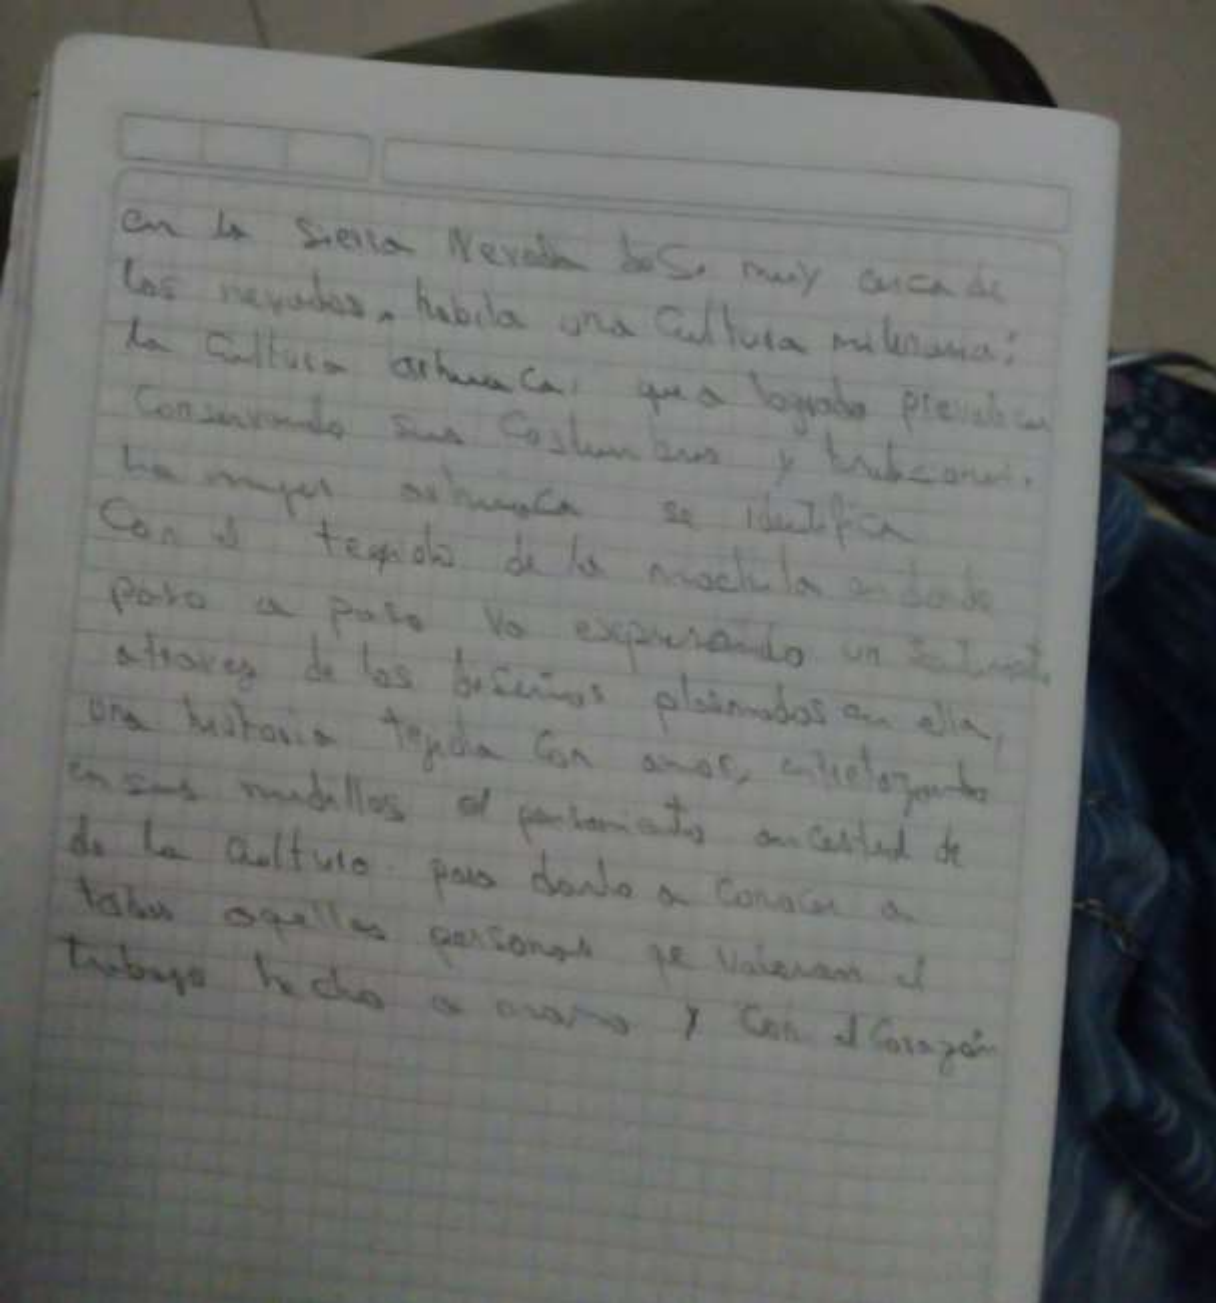 en la Sierra Nevada de S. muy cerca de
los nevados, habita una Cultura milenaria:
la Cultura arhuaca, que a logrado prevalecer
Conservando sus Costumbres y
La mujer arhuaca se identifica
Con el tegido de la mochila en donde
paso a paso va expresando un
atraves de los diseños plasmados en ella,
una historia tejida Con amor, entrelazando
en sus el pensamiento ancestral de
de la Cultura para darlo a Conocer a
todas aquellas personas qe valoran el
trabajo hecho a mano y Con el Corazón